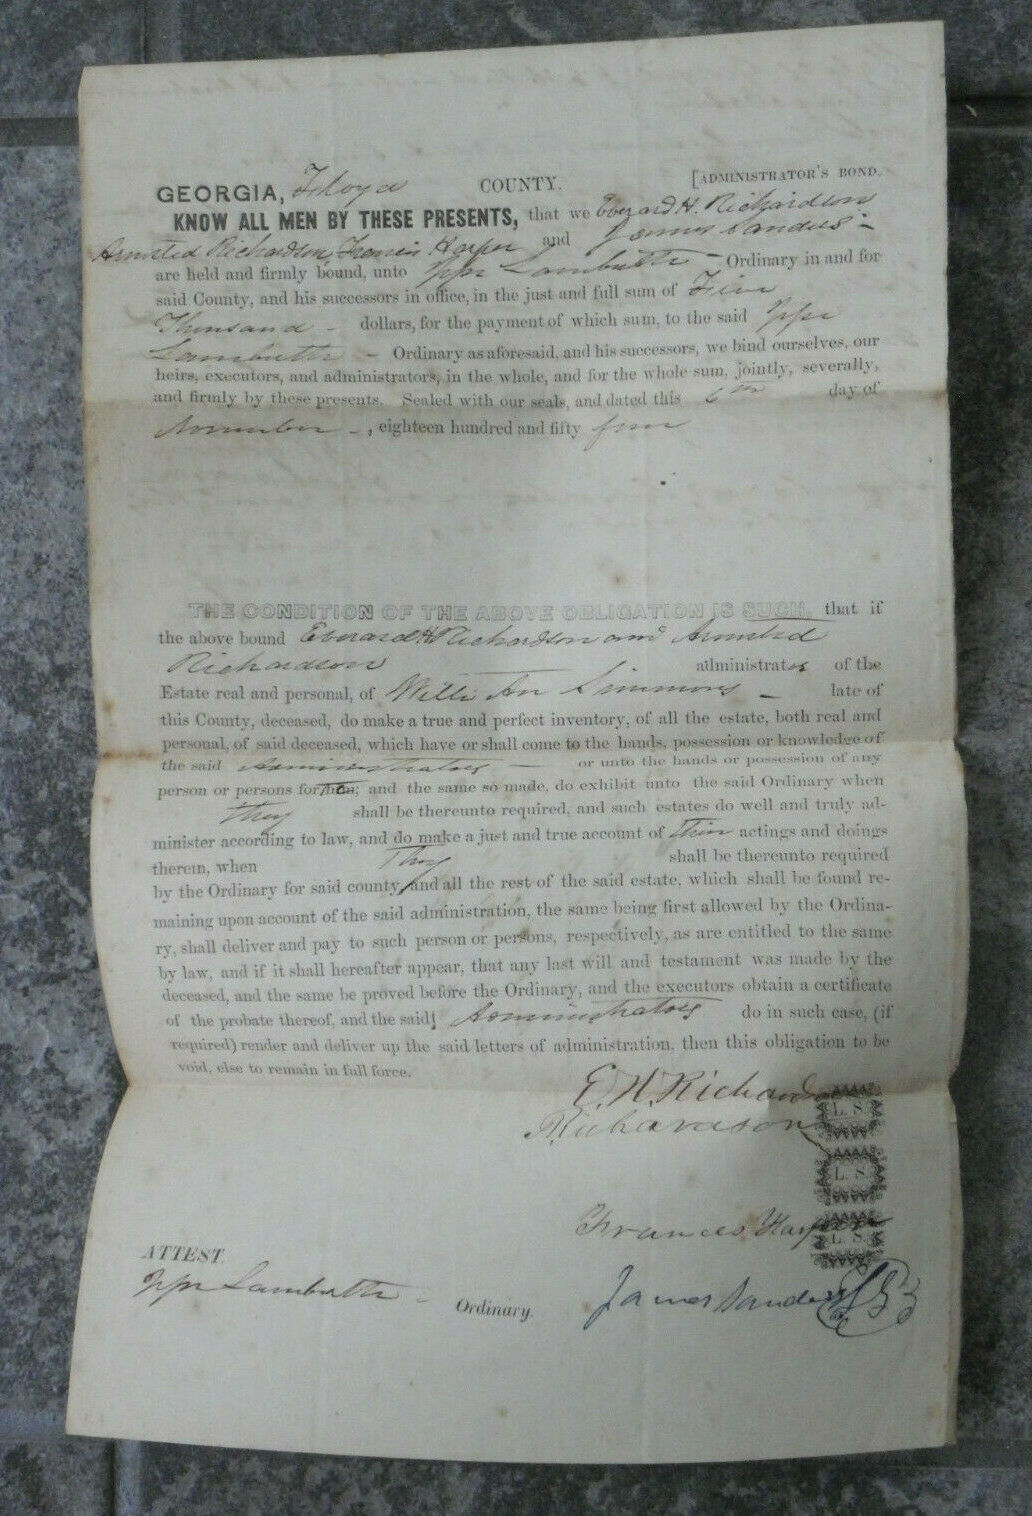 GEORGIA, Floyd COUNTY. [ADMINISTRATOR'S BOND.
KNOW ALL MEN BY THESE PRESENTS, that we Everard H. Richardson
Armsted Richardson, Francis Harper and James Sanders -
are held and firmly bound, unto Lambuth - Ordinary in and for
said County, and his successors in office, in the just and full sum of Five
Thousand - dollars, for the payment of which sum, to the said
Lambuth - Ordinary as aforesaid, and his successors, we bind ourselves, our
heirs, executors, and administrators, in the whole, and for the whole sum, jointly, severally,
and firmly by these presents. Sealed with our seals, and dated this 6th day of
November -, eighteen hundred and fifty four
THE CONDITION OF THE ABOVE OBLIGATION IS SUCH, that if
the above bound Everard H Richardson and Armsted
Richardson administrators of the
Estate real and personal, of Simmons - late of
this County, deceased, do make a true and perfect inventory, of all the estate, both real and
personal, of said deceased, which have or shall come to the hands, possession or knowledge of
the said Administrators - or unto the hands or possession of any
person or persons for them; and the same so made, do exhibit unto the said Ordinary when
they shall be thereunto required, and such estates do well and truly ad-
minister according to law, and do make a just and true account of their actings and doings
therein, when they shall be thereunto required
by the Ordinary for said county, and all the rest of the said estate, which shall be found re-
maining upon account of the said administration, the same being first allowed by the Ordina-
ry, shall deliver and pay to such person or persons, respectively, as are entitled to the same
by law, and if it shall hereafter appear, that any last will and testament was made by the
deceased, and the same be proved before the Ordinary, and the executors obtain a certificate
of the probate thereof, and the said Administrators do in such case, (if
required) render and deliver up the said letters of administration, then this obligation to be
void, else to remain in full force.
E. H. Richardson L. S.
Richardson
L. S.
Frances Harper L. S.
ATTEST.
Lambuth - Ordinary.
James Sanders LS